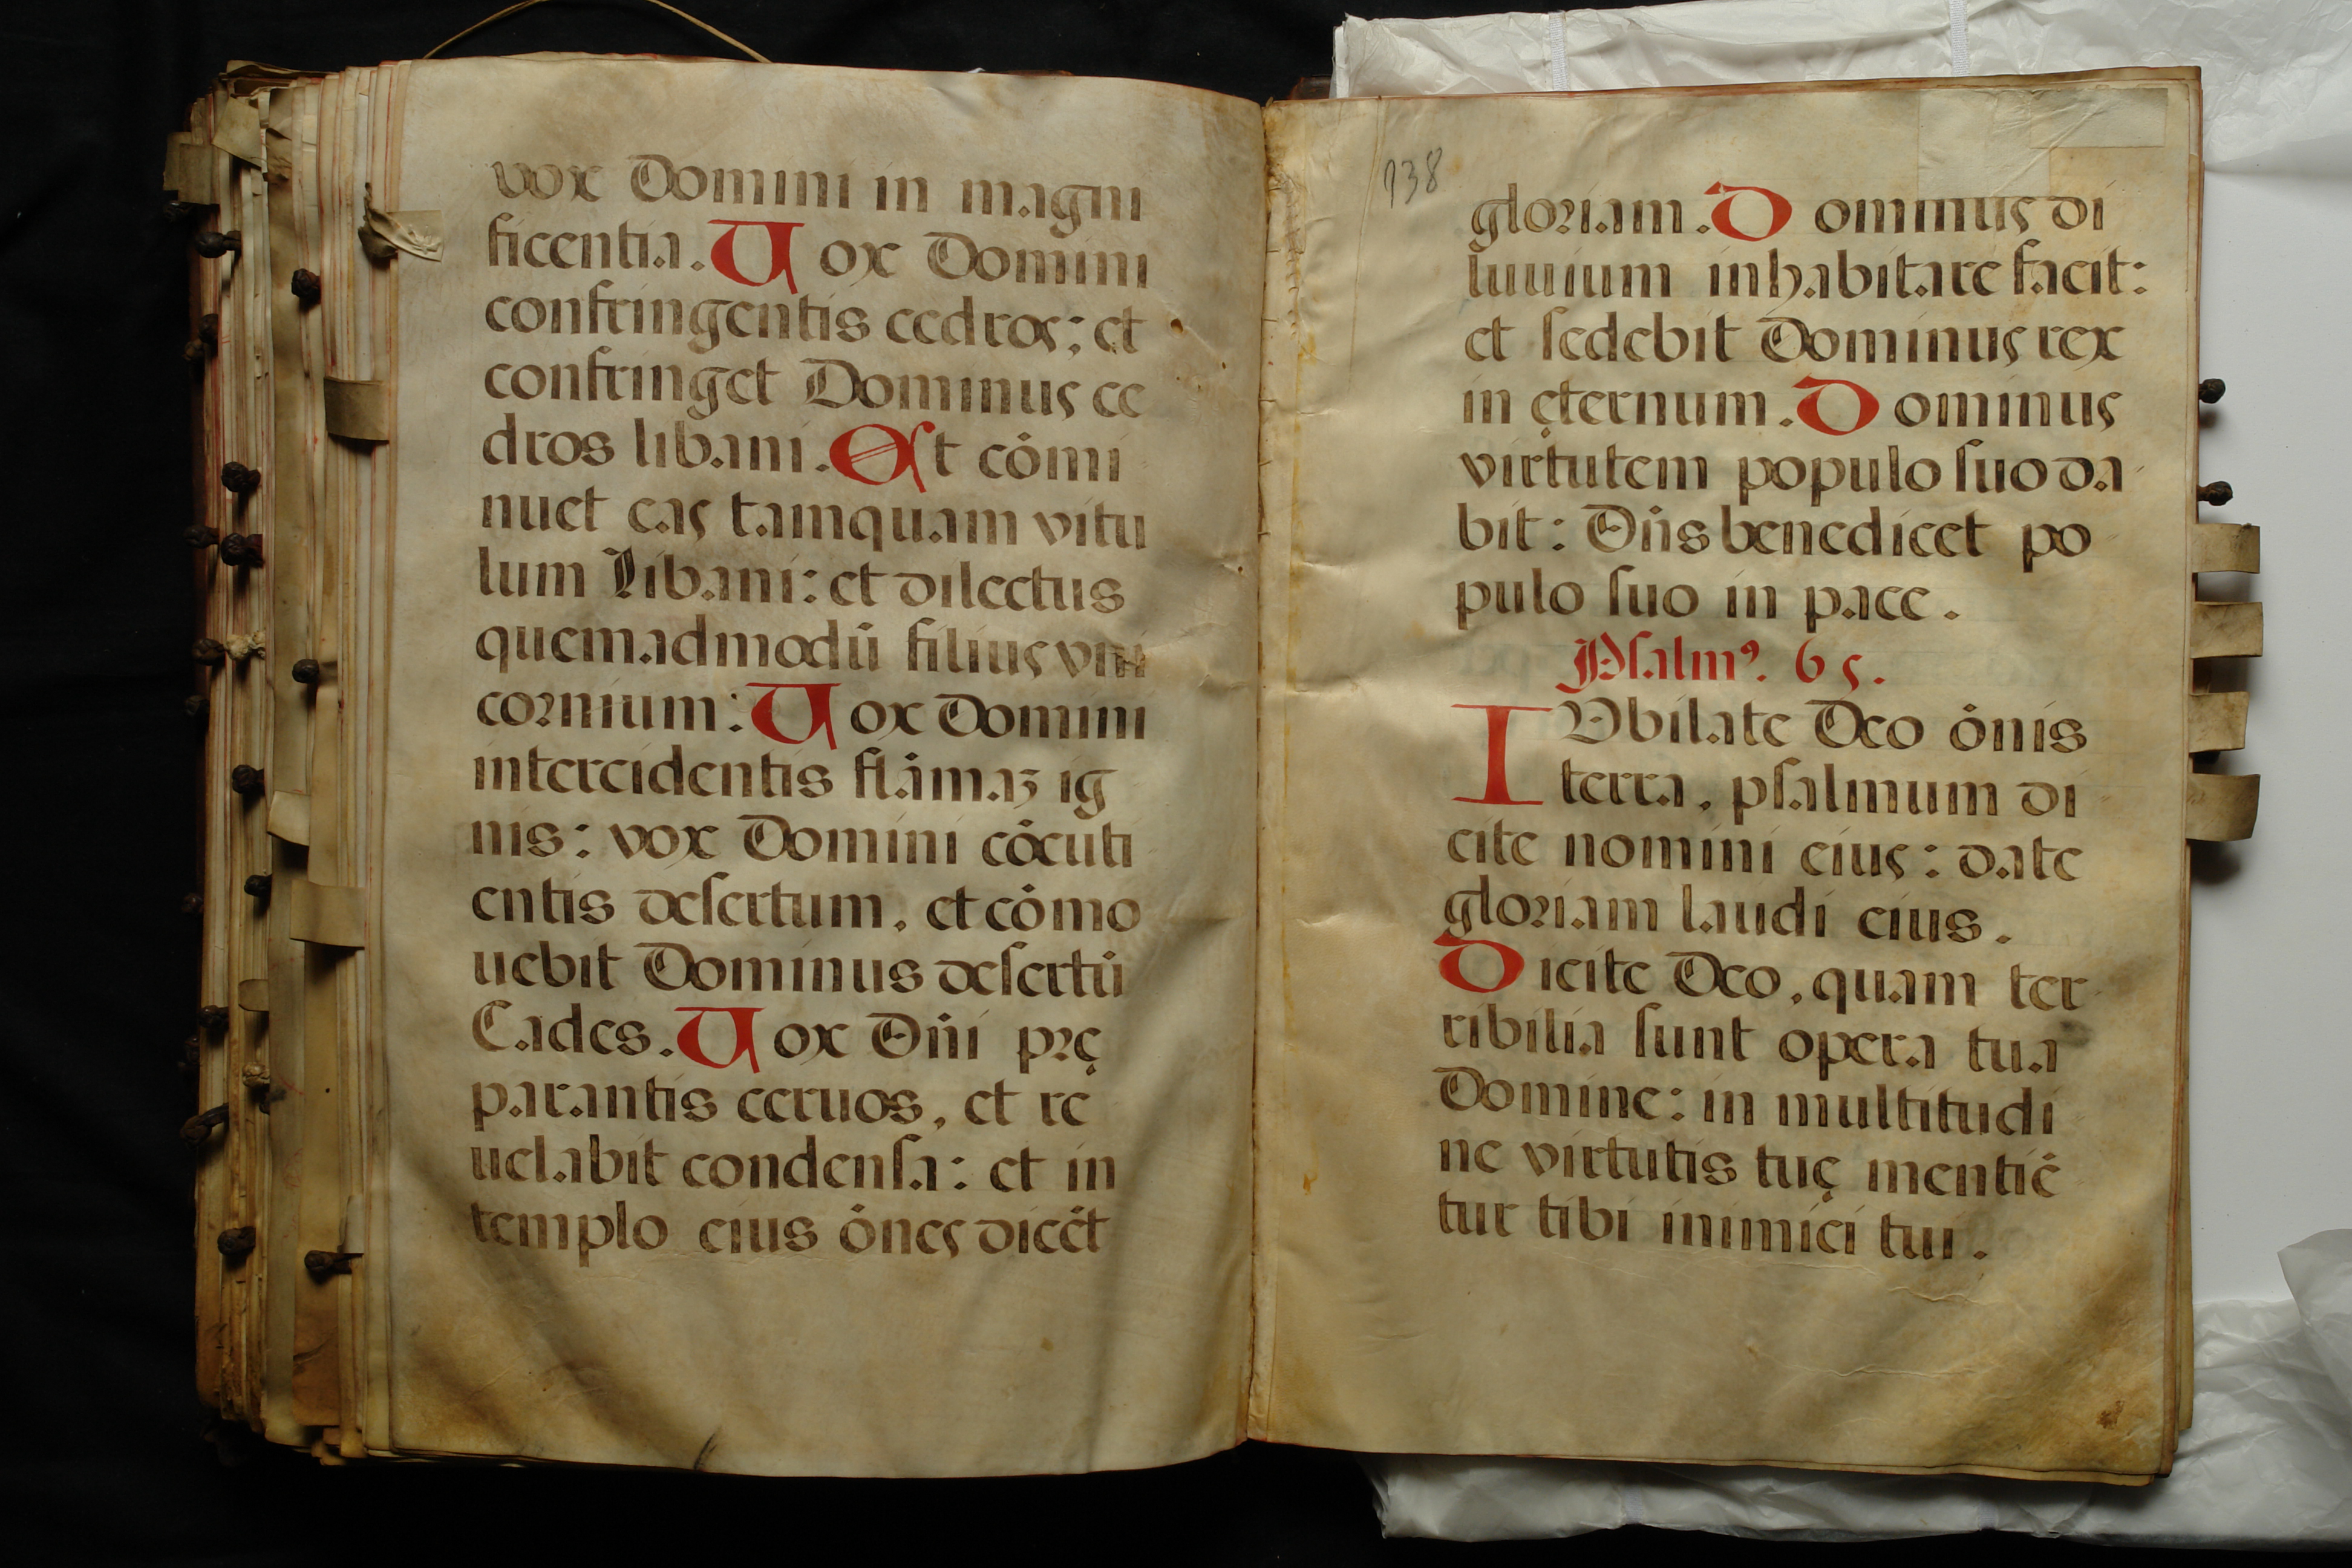 vox Domini in magni
ficentia. Uox Domini
confringentis cedros: et
confringet Dominus ce
dros libani. Et cōmi
nuet eas tamquam vitu
lum Libani: et dilectus
quemadmodū filius vni
cornium: Uox Domini
intercidentis flāmaʒ ig
nis: vox Domini cōcuti
entis desertum, et cōmo
uebit Dominus desertū
Cades. Uox Dn̄i prę
parantis ceruos, et re
uelabit condensa: et in
templo eius ōnes dicēt
138
gloriam. Dominus di
luuium inhabitare facit:
et sedebit Dominus rex
in ęternum. Dominus
virtutem populo suo da
bit: Dn̄s benedicet po
pulo suo in pace.
Psalmꝰ. 65.
IUbilate Deo ōnis
terra, psalmum di
cite nomini eius: date
gloriam laudi eius.
Dicite Deo, quam ter
ribilia sunt opera tua
Domine: in multitudi
ne virtutis tuę mentiē
tur tibi inimici tui.